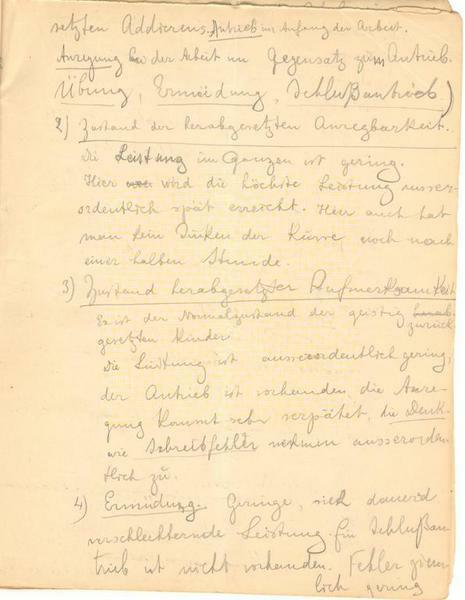 setzten Addierens. Antrieb im Anfang der Arbeit.
Anregung bei der Arbeit im Gegensatz zum Antrieb.
Übung, Ermüdung, Schlußantrieb)
2) Zustand der herabgesetzten Anregbarkeit.
Die Leistung im Ganzen ist gering.
Hier wird die höchste Leistung ausser-
ordentlich spät erreicht. Hier auch hat
man kein Sinken der Kurve noch nach
einer halben Stunde.
3) Zustand herabgesetzter Aufmerksamkeit
Es ist der Normalzustand der geistig
zurück
gesetzten Kinder
Die Leistung ist ausserordentlich gering,
der Antrieb ist vorhanden, die Anre-
gung kommt sehr verspätet, die Denk-
wie Schreibfehler nehmen ausserorden-
tlich zu.
4) Ermüdung. Geringe, sich dauernd
verschlechternde Leistung. Ein Schlußan-
trieb ist nicht vorhanden. Fehler ziem-
lich gering